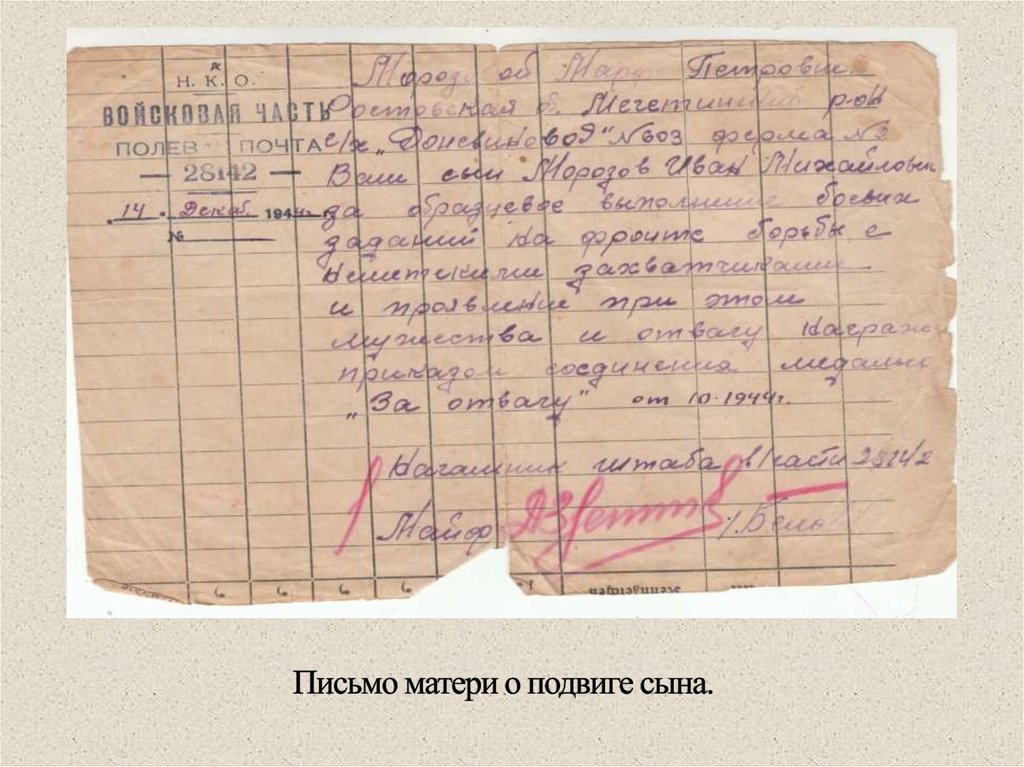 Н. К. О.
ВОЙСКОВАЯ ЧАСТЬ
ПОЛЕВ ПОЧТА
— 28142 —
14 Декаб. 1944 г.
№
Морозовой Петровне
Ростовская о. Мечетинский р-он
с/х „Донсвиновод" №603 ферма №2
Ваш сын Морозов Иван Михайлович
за образцовое выполнение боевых
заданий на фронте борьбы с
немецкими захватчиками
и проявление при этом
мужества и отвагу награжден
приказом соединения медалью
„За отвагу" от 10.1944г.
Начальник штаба в/части 28142
Майор /. Бель
6 6 6 6
Письмо матери о подвиге сына.